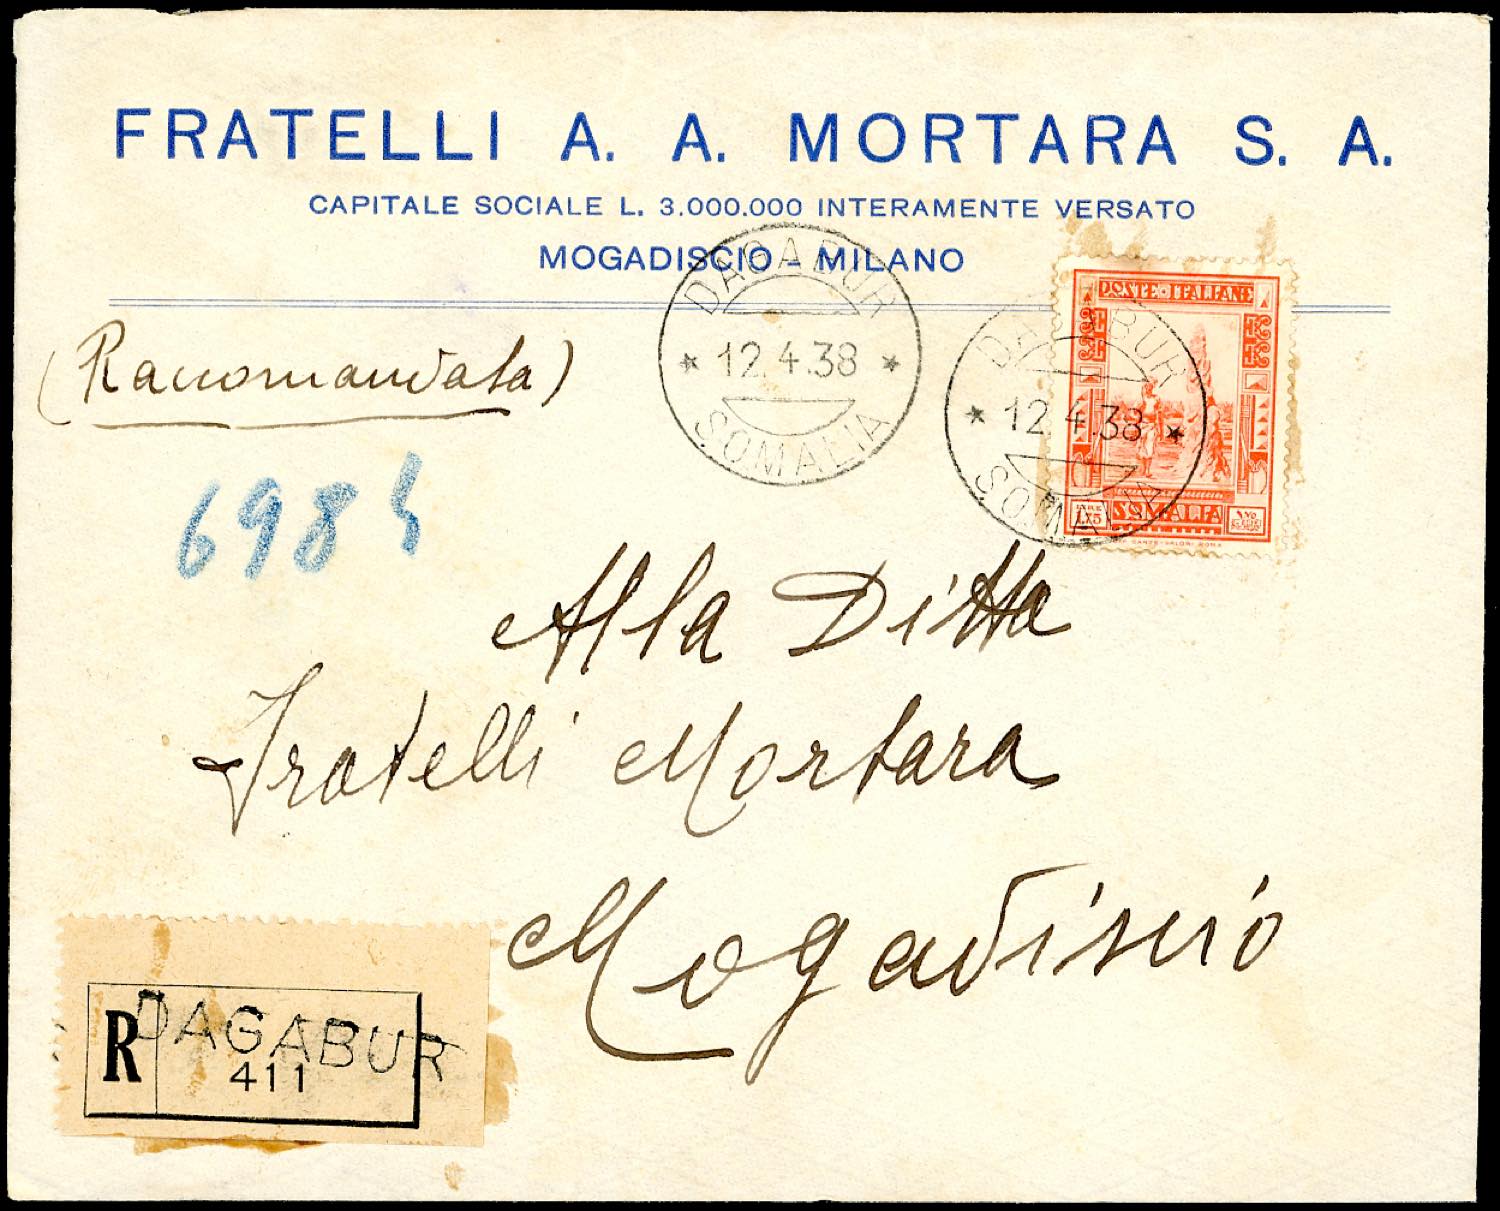 FRATELLI A. A. MORTARA S. A.
CAPITALE SOCIALE L. 3.000.000 INTERAMENTE VERSATO
MOGADISCIO - MILANO
DAGABUR
* 12.4.38 *
SOMALIA
DAGABUR
* 12.4.38 *
SOMALIA
POSTE · ITALIANE
LIRE
1,75
SOMALIA
(Raccomandata)
Alla Ditta
Fratelli Mortara
Mogadiscio
R
DAGABUR
411